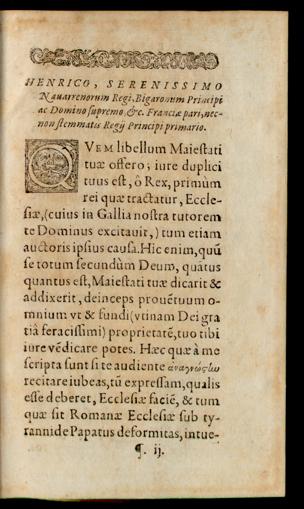 HENRICO, SERENISSIMO
Nauarrenorum Regi, Bigaronum Principi
ac Domino supremo, &c. Franciæ pari, nec-
non stemmatis Regij Principi primario.
QVEM libellum Maiestati
tuæ offero; iure duplici
tuus est, ô Rex, primùm
rei quæ tractatur, Eccle-
siæ, (cuius in Gallia nostra tutorem
te Dominus excitauit,) tum etiam
auctoris ipsius causa. Hic enim, quū
se totum secundùm Deum, quātus
quantus est, Maiestati tuæ dicarit &
addixerit, deinceps prouētuum o-
mnium vt & fundi (vtinam Dei gra
tiâ feracissimi) proprietatē, tuo tibi
iure vēdicare potes. Hæc quæ à me
scripta sunt si te audiente ἀναγνώςῃ
recitare iubeas, tū expressam, qualis
esse deberet, Ecclesiæ faciē, & tum
quæ sit Romanæ Ecclesiæ sub ty-
rannide Papatus deformitas, intue-
¶. ij.